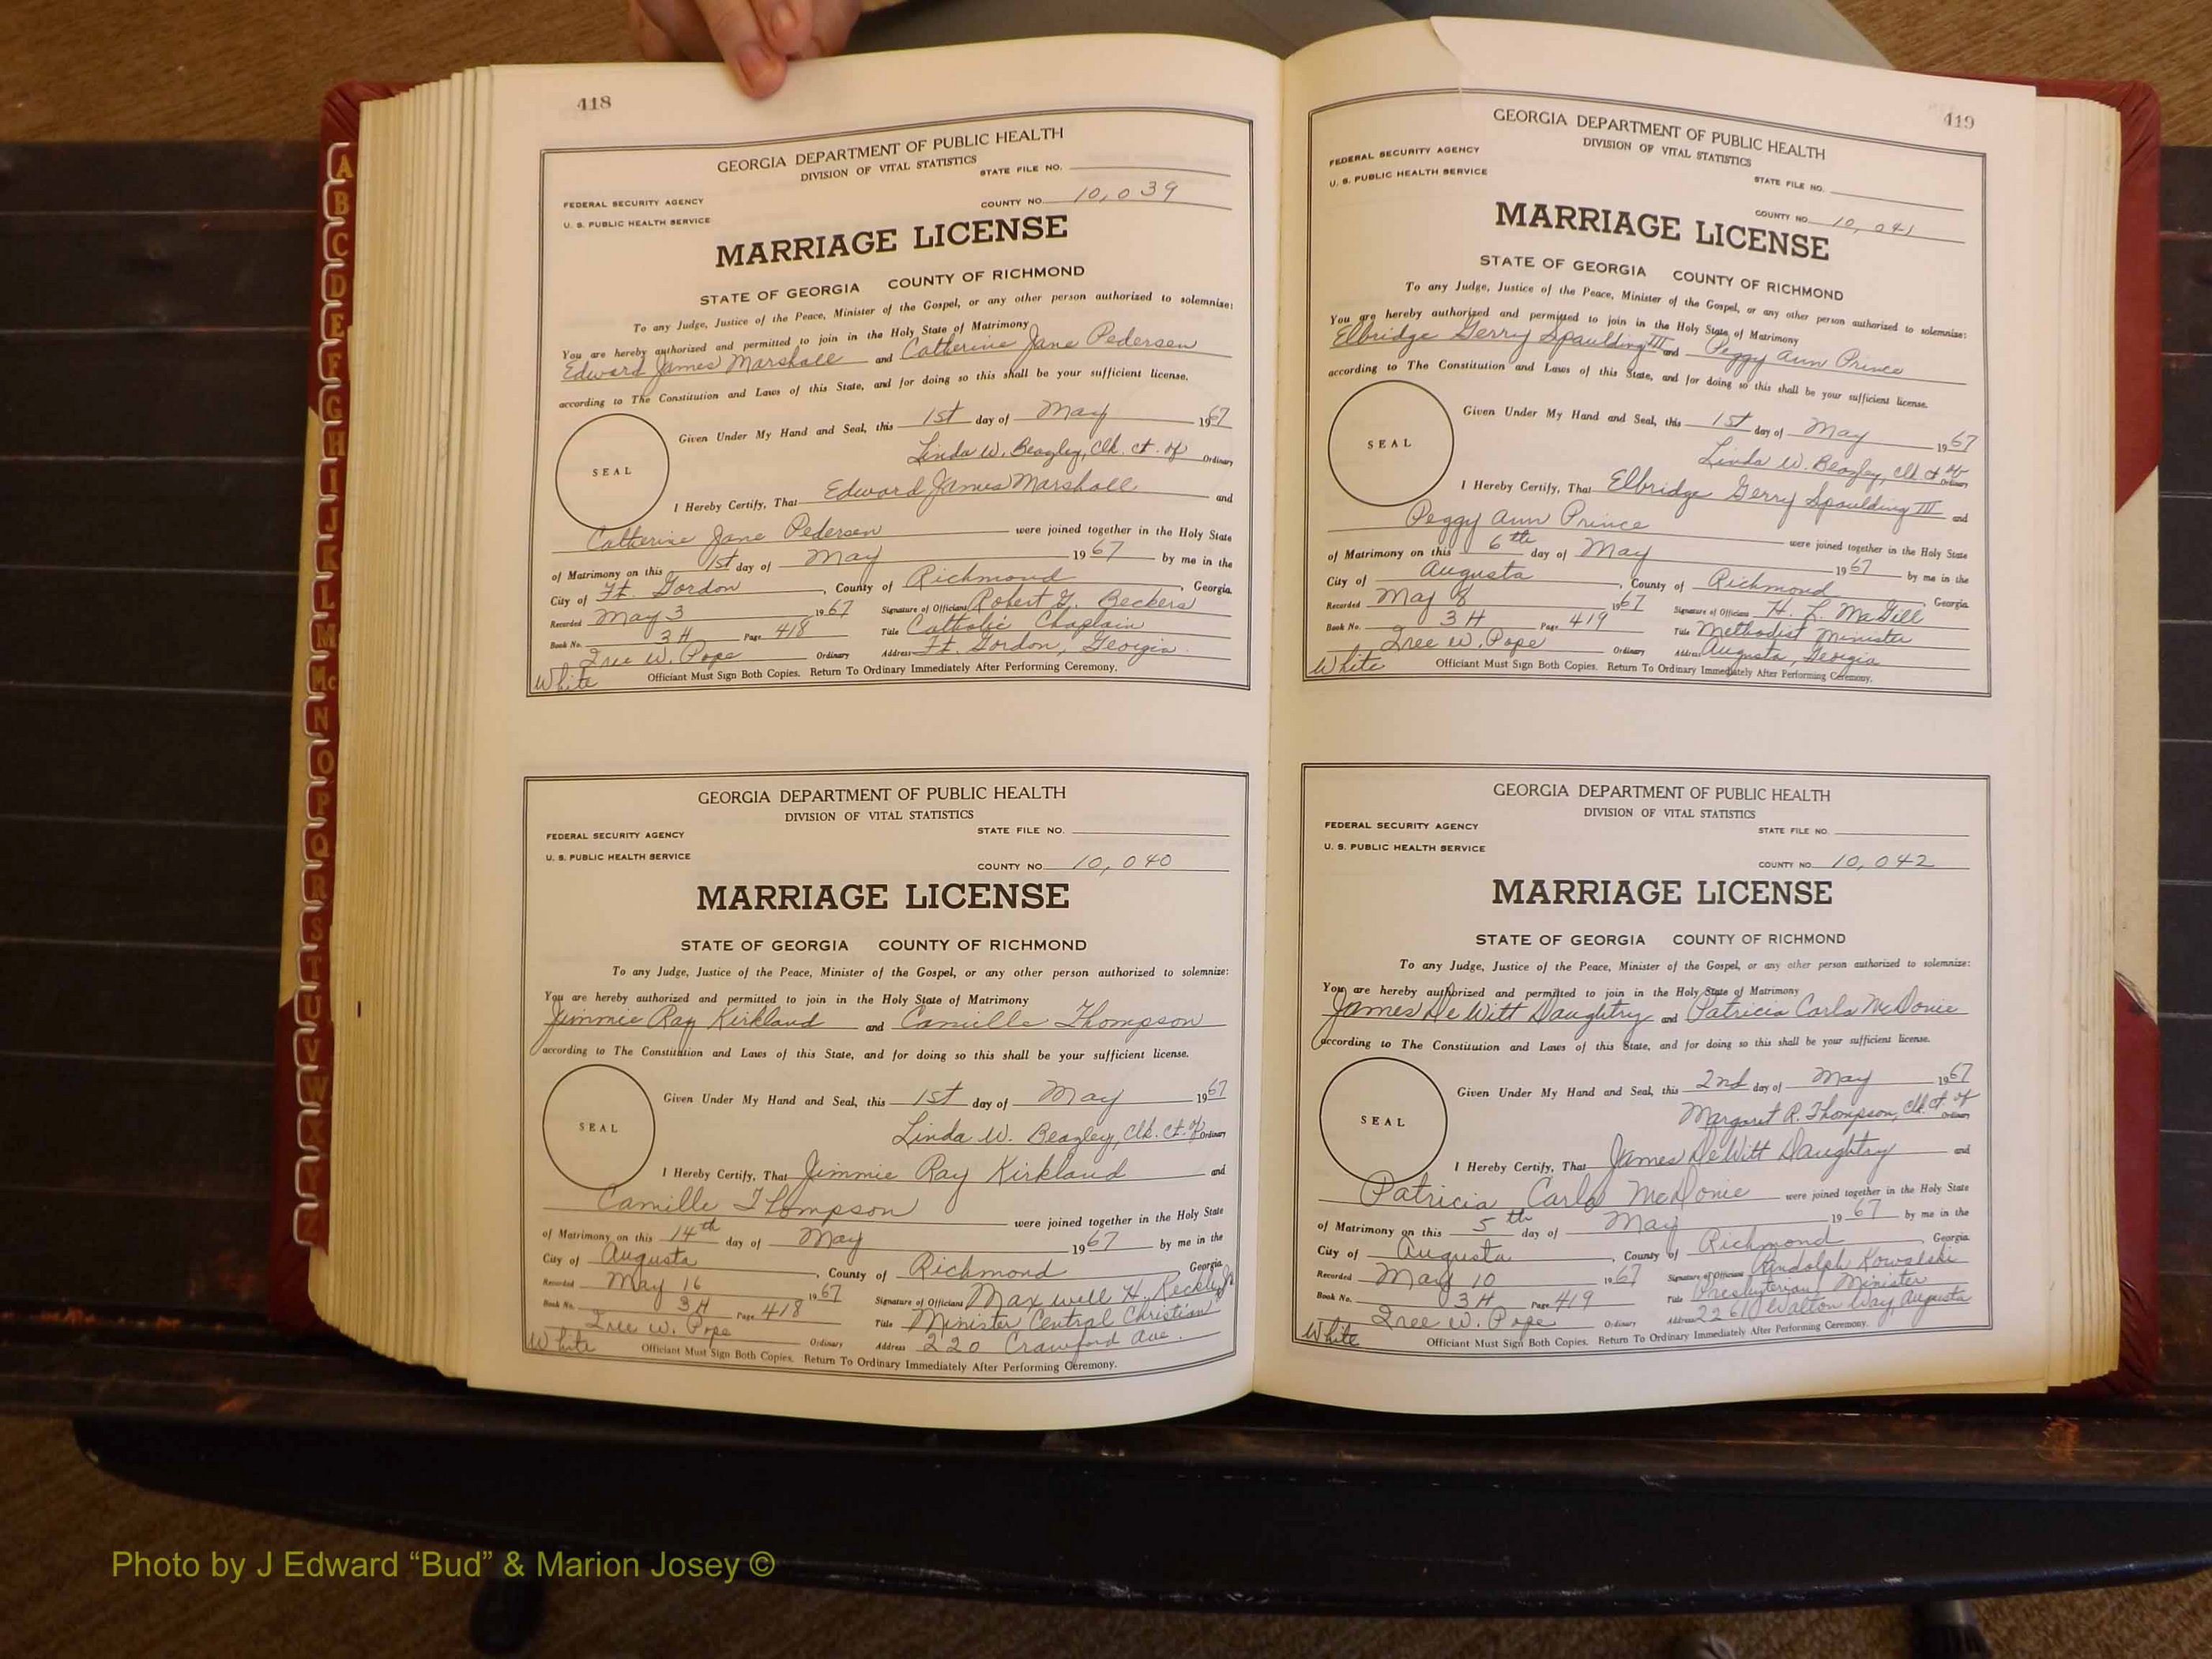 418
GEORGIA DEPARTMENT OF PUBLIC HEALTH
DIVISION OF VITAL STATISTICS
STATE FILE NO.
FEDERAL SECURITY AGENCY
COUNTY NO. 10,039
U. S. PUBLIC HEALTH SERVICE
MARRIAGE LICENSE
STATE OF GEORGIA COUNTY OF RICHMOND
To any Judge, Justice of the Peace, Minister of the Gospel, or any other person authorized to solemnize:
You are hereby authorized and permitted to join in the Holy State of Matrimony
Edward James Marshall and Catherine Jane Pedersen
according to The Constitution and Laws of this State, and for doing so this shall be your sufficient license.
Given Under My Hand and Seal, this 1st day of May 1967
Linda W. Beazley, Clk. Ct. of Ordinary
SEAL
I Hereby Certify, That Edward James Marshall and
Catherine Jane Pedersen were joined together in the Holy State
of Matrimony on this 1st day of May 1967 by me in the
City of Ft. Gordon, County of Richmond, Georgia.
Recorded May 3 1967 Signature of Officiant Robert G. Beckers
Book No. 3H Page 418 Title Catholic Chaplain
Iree W. Pope Ordinary Address Ft. Gordon, Georgia
White Officiant Must Sign Both Copies. Return To Ordinary Immediately After Performing Ceremony.
GEORGIA DEPARTMENT OF PUBLIC HEALTH
DIVISION OF VITAL STATISTICS
FEDERAL SECURITY AGENCY STATE FILE NO.
U. S. PUBLIC HEALTH SERVICE
COUNTY NO. 10,040
MARRIAGE LICENSE
STATE OF GEORGIA COUNTY OF RICHMOND
To any Judge, Justice of the Peace, Minister of the Gospel, or any other person authorized to solemnize:
You are hereby authorized and permitted to join in the Holy State of Matrimony
Jimmie Ray Kirkland and Camille Thompson
according to The Constitution and Laws of this State, and for doing so this shall be your sufficient license.
Given Under My Hand and Seal, this 1st day of May 1967
SEAL
Linda W. Beazley, Clk. Ct. of Ordinary
I Hereby Certify, That Jimmie Ray Kirkland and
Camille Thompson were joined together in the Holy State
of Matrimony on this 14th day of May 1967 by me in the
City of Augusta, County of Richmond Georgia
Recorded May 16 1967 Signature of Officiant Maxwell H.
Book No. 3H Page 418 Title Minister Central Christian
Iree W. Pope Ordinary Address 220 Crawford Ave.
White Officiant Must Sign Both Copies. Return To Ordinary Immediately After Performing Ceremony.
419
GEORGIA DEPARTMENT OF PUBLIC HEALTH
DIVISION OF VITAL STATISTICS
FEDERAL SECURITY AGENCY
U. S. PUBLIC HEALTH SERVICE
STATE FILE NO.
COUNTY NO. 10,041
MARRIAGE LICENSE
STATE OF GEORGIA COUNTY OF RICHMOND
To any Judge, Justice of the Peace, Minister of the Gospel, or any other person authorized to solemnize:
You are hereby authorized and permitted to join in the Holy State of Matrimony
Elbridge Gerry Spaulding III and Peggy Ann Prince
according to The Constitution and Laws of this State, and for doing so this shall be your sufficient license.
Given Under My Hand and Seal, this 1st day of May 1967
SEAL
Linda W. Beazley, Clk Ct of Ordinary
I Hereby Certify, That Elbridge Gerry Spaulding III and
Peggy Ann Prince were joined together in the Holy State
of Matrimony on this 6th day of May 1967 by me in the
City of Augusta, County of Richmond Georgia
Recorded May 8 1967 Signature of Officiant H. L. McGill
Book No. 3H Page 419 Title Methodist Minister
Iree W. Pope Ordinary Address Augusta, Georgia
White Officiant Must Sign Both Copies. Return To Ordinary Immediately After Performing Ceremony.
GEORGIA DEPARTMENT OF PUBLIC HEALTH
DIVISION OF VITAL STATISTICS
FEDERAL SECURITY AGENCY STATE FILE NO.
U. S. PUBLIC HEALTH SERVICE
COUNTY NO. 10,042
MARRIAGE LICENSE
STATE OF GEORGIA COUNTY OF RICHMOND
To any Judge, Justice of the Peace, Minister of the Gospel, or any other person authorized to solemnize:
You are hereby authorized and permitted to join in the Holy State of Matrimony
James DeWitt Daughtry and Patricia Carla McDonie
according to The Constitution and Laws of this State, and for doing so this shall be your sufficient license.
Given Under My Hand and Seal, this 2nd day of May 1967
SEAL
Margaret R. Thompson, Clk. Ct. of Ordinary
I Hereby Certify, That James DeWitt Daughtry and
Patricia Carla McDonie were joined together in the Holy State
of Matrimony on this 5th day of May 1967 by me in the
City of Augusta, County of Richmond, Georgia
Recorded May 10 1967 Signature of Officiant Randolph Kowalski
Book No. 3H Page 419 Title Presbyterian Minister
Iree W. Pope Ordinary Address 2261 Walton Way, Augusta
White Officiant Must Sign Both Copies. Return To Ordinary Immediately After Performing Ceremony.
A
B
C
D
E
F
G
H
I
J
K
L
M
Mc
N
O
P
Q
R
S
T
U
V
W
X
Y
Z
Photo by J Edward “Bud” & Marion Josey ©